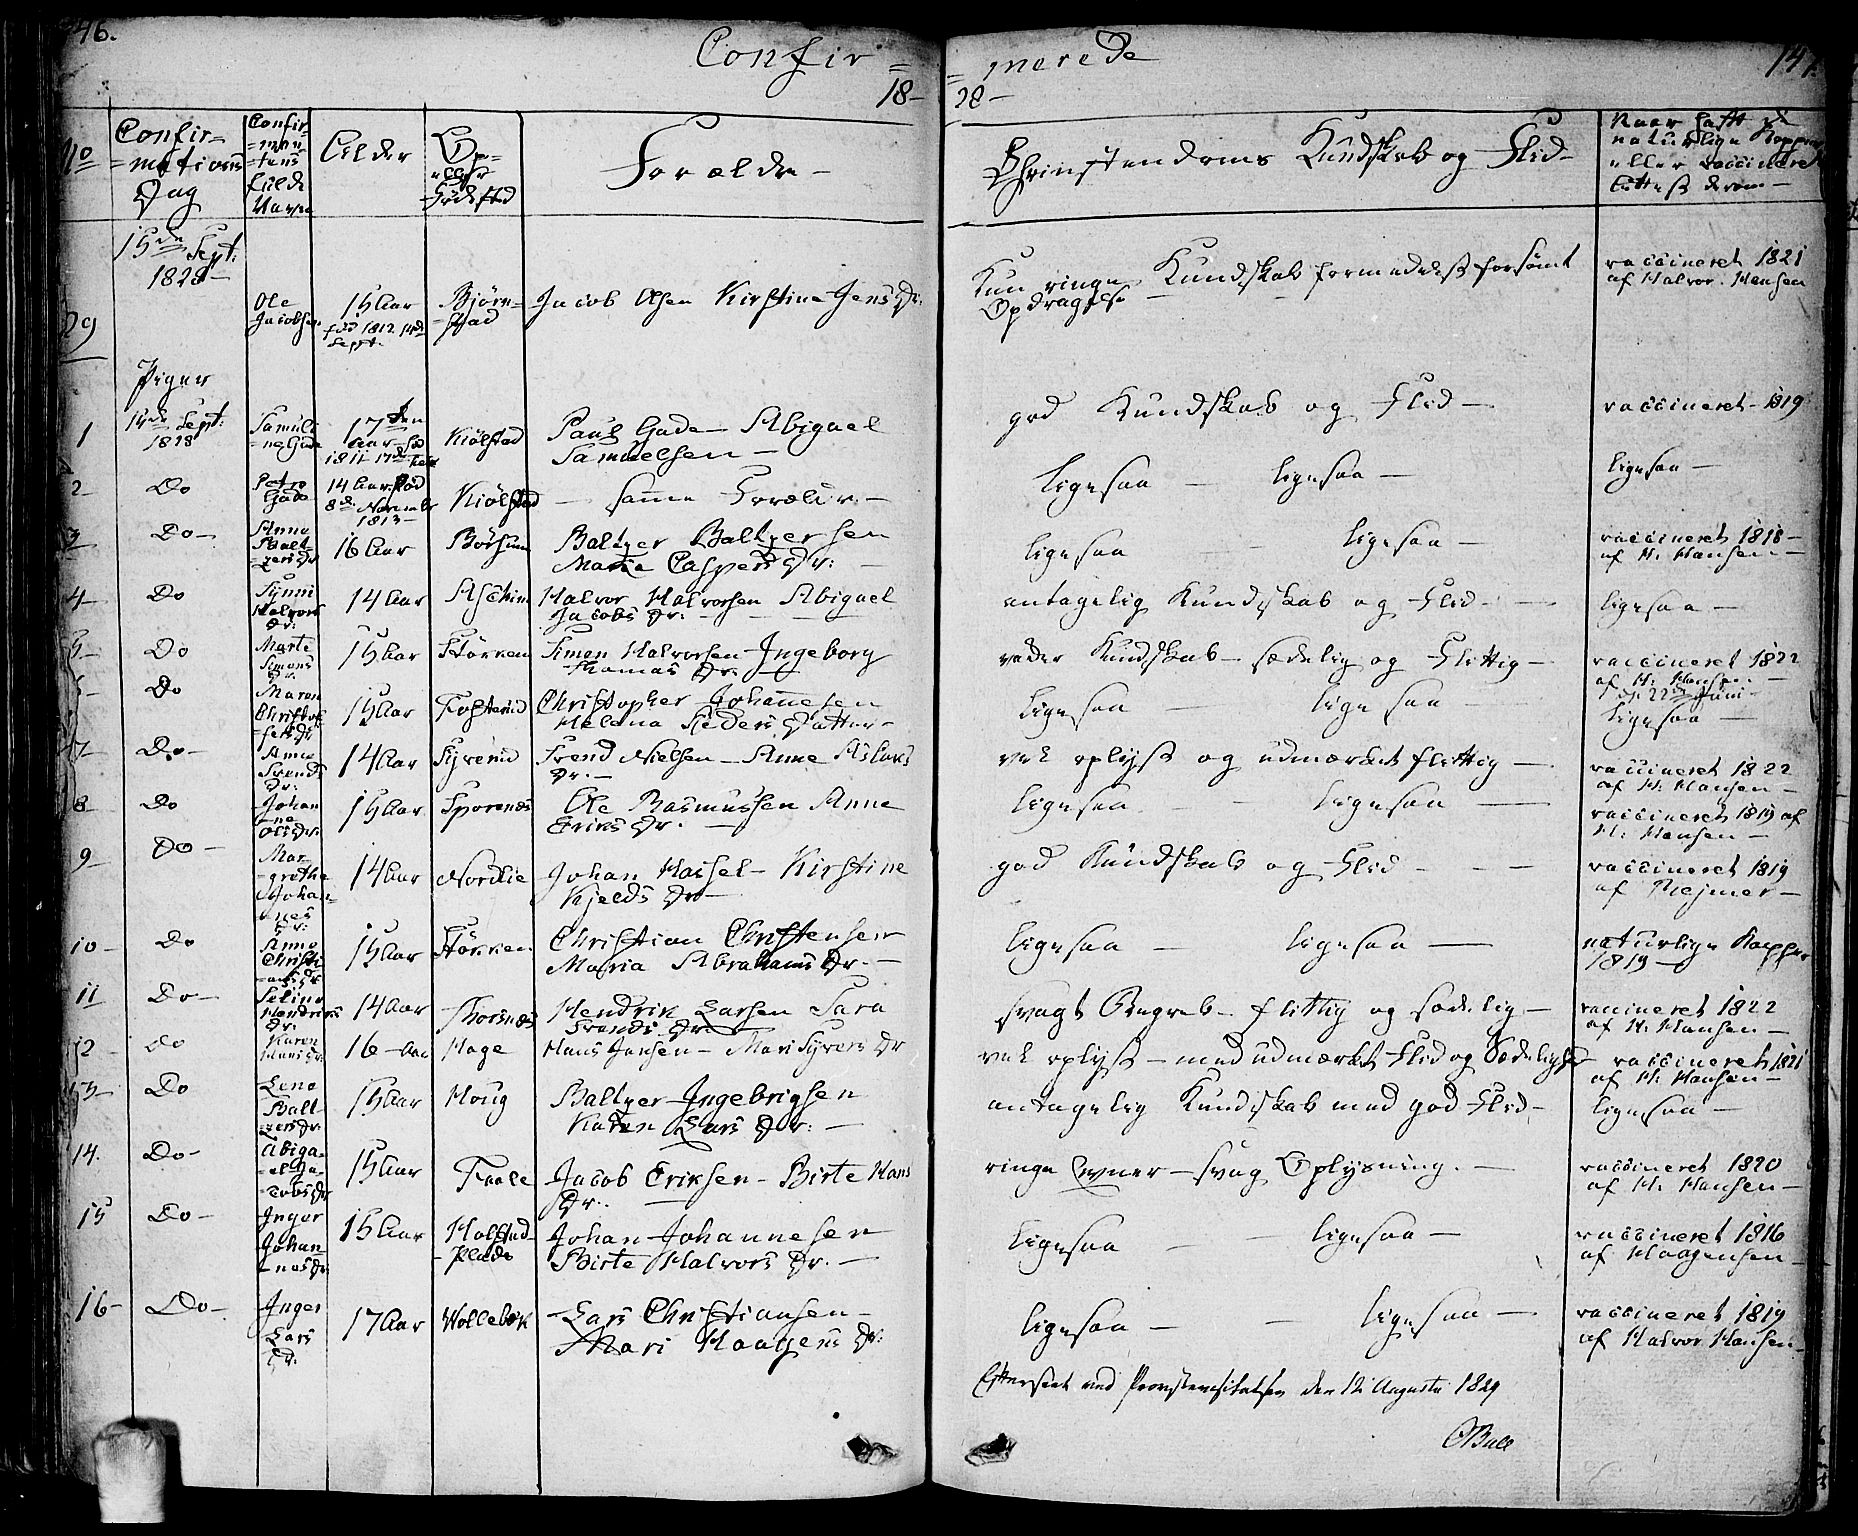 146.
Confir=
=merede
147.
18-
28-
No
Confir=
=mations
Dag
Confir-
=man
=tens
fulde
Navn
Alder
Op=
=ogsr
Födested
Forældre -
Christendoms Kundskab og Flid-
Naar hafft de
naturlige Kopper
eller vaccineret
Attest derom -
15de Sept:
1828 -
29
Ole
Jacobsen
15 Aar
fød 1812 14de
Septr.
Bjørn-
-stad
Jacob Olsen Kirstine Jens Dr:
Kun ringe Kundskab formedelst forsömt
Opdragelse
vaccineret 1821
af Halvor Hansen
Piger
1
14de Sept:
1828
Samuli
=ne Gude
17 den
Aar fød
1811 17de
Kiölstad
Paul Gude - Abigael
Samuelsen -
god Kundskab og Flid -
vaccineret - 1819
2 -
Do
Petra
Gude
14 Aar fød
8de November
1813 -
Kiölstad
- samme Forældre. -
ligesaa - ligesaa -
ligesaa -
3
Do -
Anne
Balt-
-zers Dr
16 Aar
Börsum
Baltzer Baltzersen
Maria Caspers Dr: -
ligesaa - ligesaa -
vaccineret 1818 -
af H. Hansen -
4 -
Do
Synni
Halvors
Dr:
14 Aar
Aschim
Halvor Halvorsen Abigael
Jacobs Dr: -
antagelig Kundskab og Flid - -
ligesaa -
5 -
Do
Marte
Simens
Dr.
15 Aar
Störren
Simen Halvorsen - Ingeborg
Thomas Dr: -
Kundskab - sædelig og Flittig -
vaccineret 1822
af H. Hansen -
d. 22de Juni -
6 -
Do
Maren
Christof
-fers Dr
15 Aar
Fosterud
Christopher Johannesen
Helena Peders Datter -
ligesaa - ligesaa -
ligesaa -
7 -
Do -
Anne
Svends
Dr:
14 Aar
Syverud
Svend Nielsen - Anne Aslaks
Dr. -
vel oplyst og udmærket flittig -
vaccineret 1822
af H. Hansen -
8 -
Do
Johan
ne
Ols Dr.
15 Aar
Sporenæs
Ole Rasmussen Anne
Eriks Dr. -
ligesaa - ligesaa -
vaccineret 1819 af
H. Hansen -
9 -
Do -
Mar-
-grethe
Johan-
-nes
Dr:
14 Aar
Nordlie
Johan Hassel - Kirstine
Kjelds Dr -
god Kundskab og Flid - - -
vaccineret 1819
af Mejner -
10 -
Do
Anne
Christi
-ans Dr
15 Aar
Störren
Christian Christensen
Maria Abrahams Dr. -
ligesaa - ligesaa -
naturlige Kopper
1819 -
11
Do -
Seline
Hendriks
Dr:
14 Aar
Thorsnæs
Hendrik Larsen Sara
Svends Dr:
svagt Begreb - flittig og sædelig -
vaccineret 1822
af H. Hansen -
12 -
Do
Karen
Hans Dr:
16 - Aar
Hage
Hans Jensen - Mari Syvers Dr
vel oplyst - med udmærket Flid og Sædelighed
vaccineret 1821
af H. Hansen -
13 -
Do
Lene
Balt-
zers Dr:
15 Aar
Houg
Baltzer Ingebrigsen
Karen Lars Dr: -
antagelig Kundskab med god Flid -
ligesaa -
14.
Do -
Abiga-
-el Ja-
-cobs Dr
15 Aar
Faale
Jacob Eriksen - Birte Hans
Dr: -
ringe Evner - svag Oplysning. -
vaccineret 1820
af H. Hansen -
15
Do -
Inger
Johan-
-nes Dr
15 Aar
Holstad-
-Plads
Johan Johannesen
Birte Halvors Dr. -
ligesaa - - ligesaa -
vaccineret 1816
af Haagensen -
16 -
Do -
Inger
Lars
Dr:
17 Aar
Wollebæk
Lars Christiansen -
Mari Haagens Dr:
ligesaa - - ligesaa -
vaccineret 1819
af Halvor Hansen -
Efterseet ved Provstevisitatsen den 12 Augusti 1829
OBull